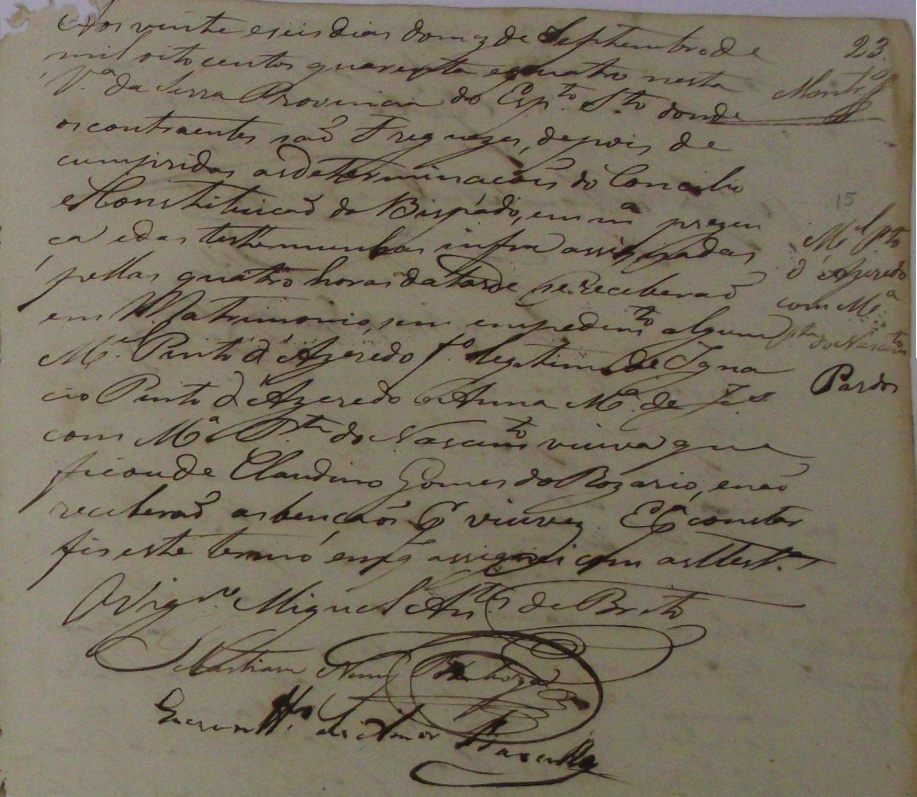 Aos vinte e seis dias do mez de Septembro de
mil oito centos quarenta e quatro nesta
V.ª da Serra Provincia do Esp.to S.to donde
os contraentes saõ Freguezes, depois de
cumpridas as determinacoẽs do Concilio
e Constituicaõ do Bispádo, em m.ª prezen
ca e das testemunhas infra assignadas
pellas quatro horas da tarde se receberaõ
em Matrimonio, sem impedim.to algum
M.el Pinto d'Azeredo f.º legitimo de Igna
cio Pinto d'Azeredo e Anna M.ª de J.s
com M.ª P.ta do Nascim.to viuva que
ficou de Claudino Gomes do Rozario, e naõ
receberaõ as bencaõs p viuvez E p constar
fis este termo em q assignei com as Test.as
O Vigr.º Miguel An.to de Brito
Sebastiam Nunes
23
M.el Pto
d'Azeredo
com M.ª
Pta do Nascim.to
Pardos
15